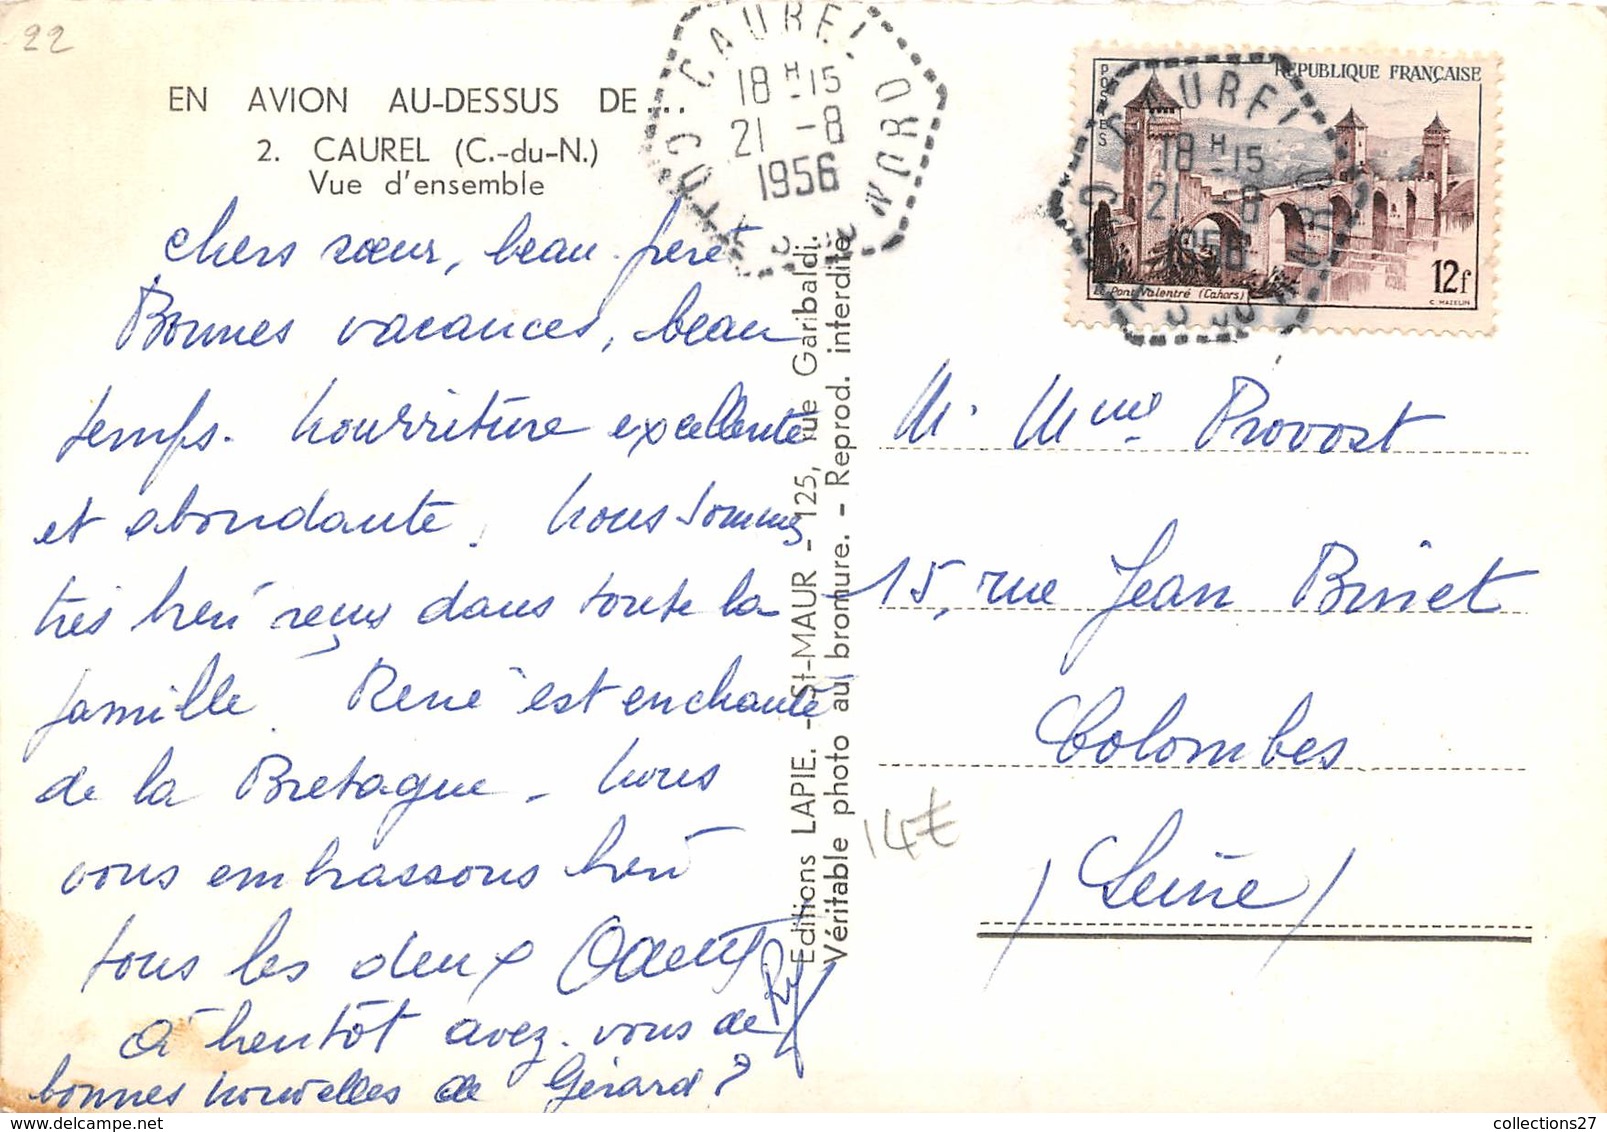 22
EN AVION AU-DESSUS DE...
2. CAUREL (C.-du-N.)
Vue d'ensemble
CAUREL
18 H -15
21 -8
1956
COTES DU NORD
POSTES
REPUBLIQUE FRANÇAISE
Le Pont Valentré (Cahors)
12f
C. MAZELIN
CAUREL
18 H 15
21 -8
1956
chers sœur, beau-frère
Bonnes vacances, beau
temps. Nourriture excellente
et abondante. Nous sommes
très bien reçus dans toute la
famille. René est enchanté
de la Bretagne - Nous
vous embrassons bien
tous les deux Odette
A bientôt avez-vous de
bonnes nouvelles de Gérard ?
Editions LAPIE. - St-MAUR - 125, rue Garibaldi.
Véritable photo au bromure. - Reprod. interdite
M. Mme Provost
15, rue Jean Binet
Colombes
(Seine)
14€
collections27